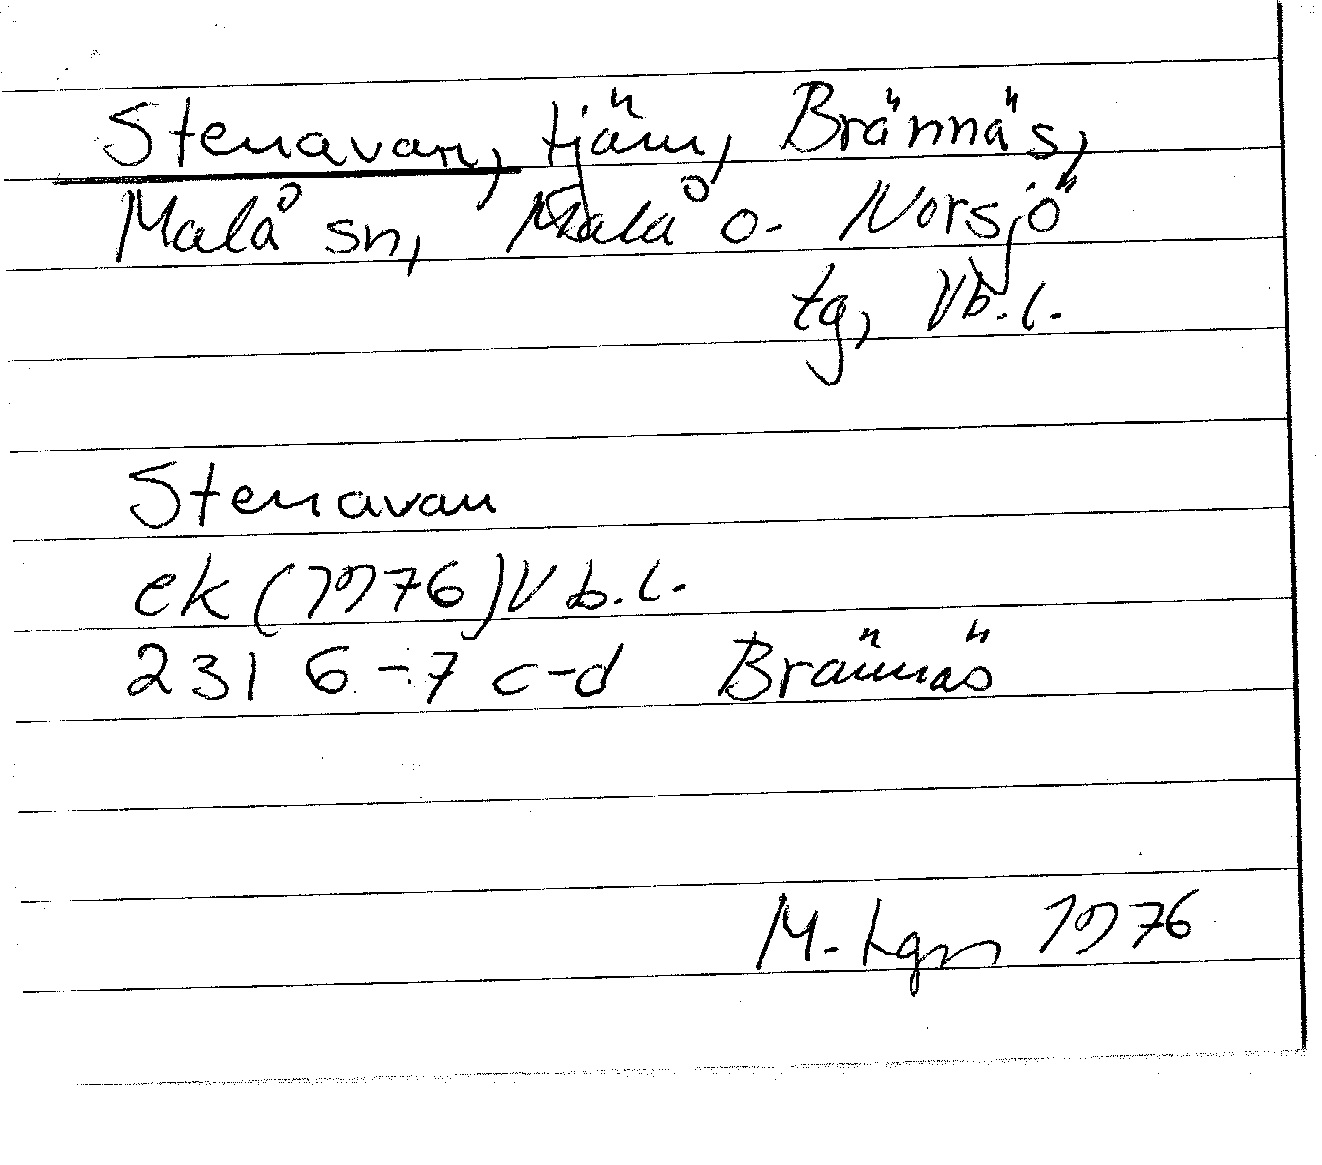 Stenavan, tjärn, Brännäs,
Malå sn, Malå o. Norsjö
tg, Vb.l.
Stenavan
ek (1976) Vb.l.
231 6-7 c-d Brännäs
M. Lgm 1976